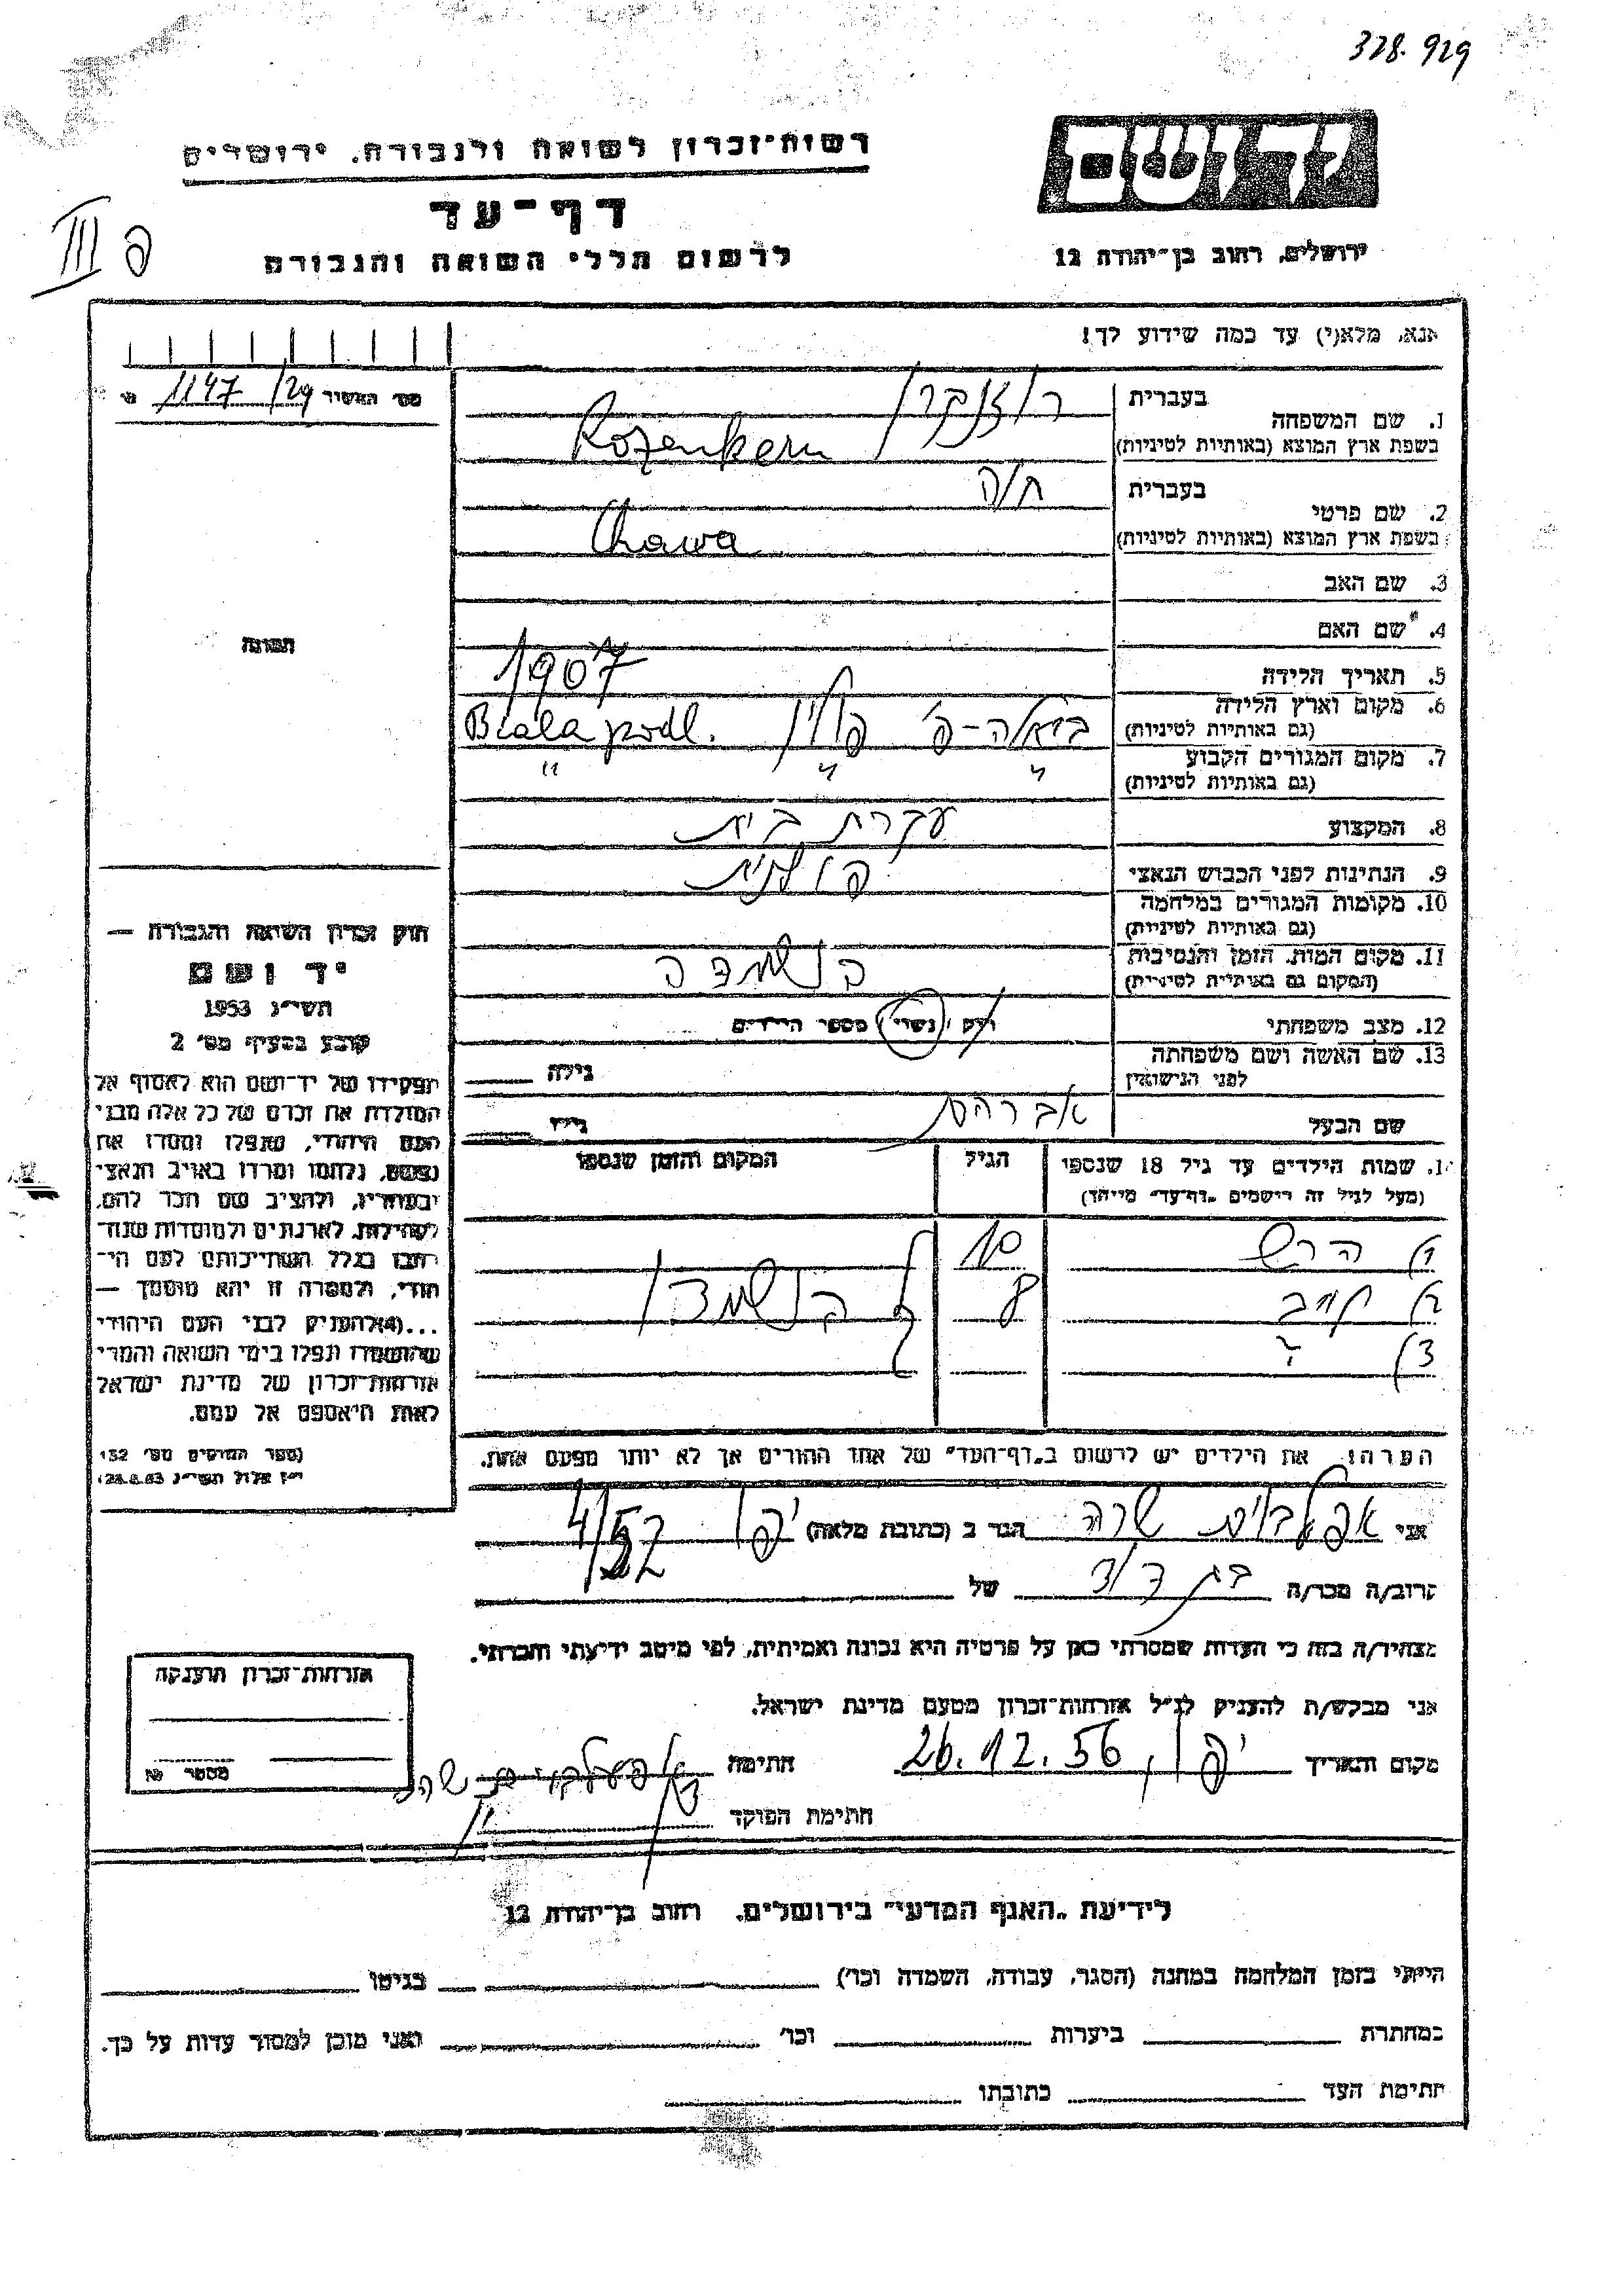 328.929
רשות־זכרון לשואה ולגבורה. ירושלים
דף־עד
לרשום חללי השואה והגבורה
ידושם
ירושלים, רחוב בן־יהודה 12
III פ
אנא, מלא(י) עד כמה שידוע לך!
מס׳ האשיר 1147/29
1. שם המשפחה
בעברית רוזנקרן
בשפת ארץ המוצא (באותיות לטיניות) Rozenkern
2. שם פרטי
בעברית חוה
בשפת ארץ המוצא (באותיות לטיניות) Chawa
3. שם האב
4. שם האם
5. תאריך הלידה 1907
6. מקום וארץ הלידה
(גם באותיות לטיניות) ביאלה-פ׳ פולין Biala podl.
7. מקום המגורים הקבוע
(גם באותיות לטיניות) " " "
8. המקצוע עקרת בית
9. הנתינות לפני הכבוש הנאצי פולנית
10. מקומות המגורים במלחמה
(גם באותיות לטיניות)
11. מקום המות, הזמן והנסיבות
(המקום גם באותיות לטיניות) בהשמדה
12. מצב משפחתי רוק / נשוי / מספר הילדים
13. שם האשה ושם משפחתה
לפני הנישואין גילה
שם הבעל אברהם גילו
שמות הילדים עד גיל 18 שנספו הגיל המקום והזמן שנספו
(מעל לגיל זה רישמים „דף־עד״ מייחד)
1) הרש 10
2) 8 בהשמדה
3) ?
הערה: את הילדים יש לרשום ב„דף־העד״ של אחד ההורים אך לא יותר מפעם אחת.
תמונה
חוק זכרון השואה והגבורה —
יד ושם
תשי״ג 1953
קובע בסעיף מס׳ 2
תפקידו של יד־ושם הוא לאסוף אל
המולדת את זכרם של כל אלה מבני
העם היהודי, שנפלו ומסרו את
נפשם, נלחמו ומרדו באויב הנאצי
ובעוזריו, ולהציב שם וזכר להם,
לקהילות, לארגונים ולמוסדות שנח־
רבו בגלל השתייכותם לעם הי־
הודי, ולמטרה זו יהא מוסמך —
...(4)להעניק לבני העם היהודי
שהושמדו ונפלו בימי השואה והמרי
אזרחות־זכרון של מדינת ישראל
לאות היאספם אל עמם.
(ספר החוקים מס׳ 132
י״ז אלול תשי״ג 28.8.53)
אני שרה הגר ב (כתובת מלאה) יפו
קרוב/ה מכר/ה בת דוד של
מצהיר/ה בזה כי העדות שמסרתי כאן על פרטיה היא נכונה ואמיתית, לפי מיטב ידיעתי והכרתי.
אני מבקש/ת להעניק לנ״ל אזרחות־זכרון מטעם מדינת ישראל.
מקום ותאריך יפו, 26.12.56 חתימה
חתימת הפוקד
אזרחות־זכרון הוענקה
מספר
לידיעת „האגף המדעי״ בירושלים. רחוב בן־יהודה 12
הייתי בזמן המלחמה במחנה (הסגר, עבודה, השמדה וכו׳) בגיטו
במחתרת ביערות וכו׳ ואני מוכן למסור עדות על כך.
חתימת העד כתובתו